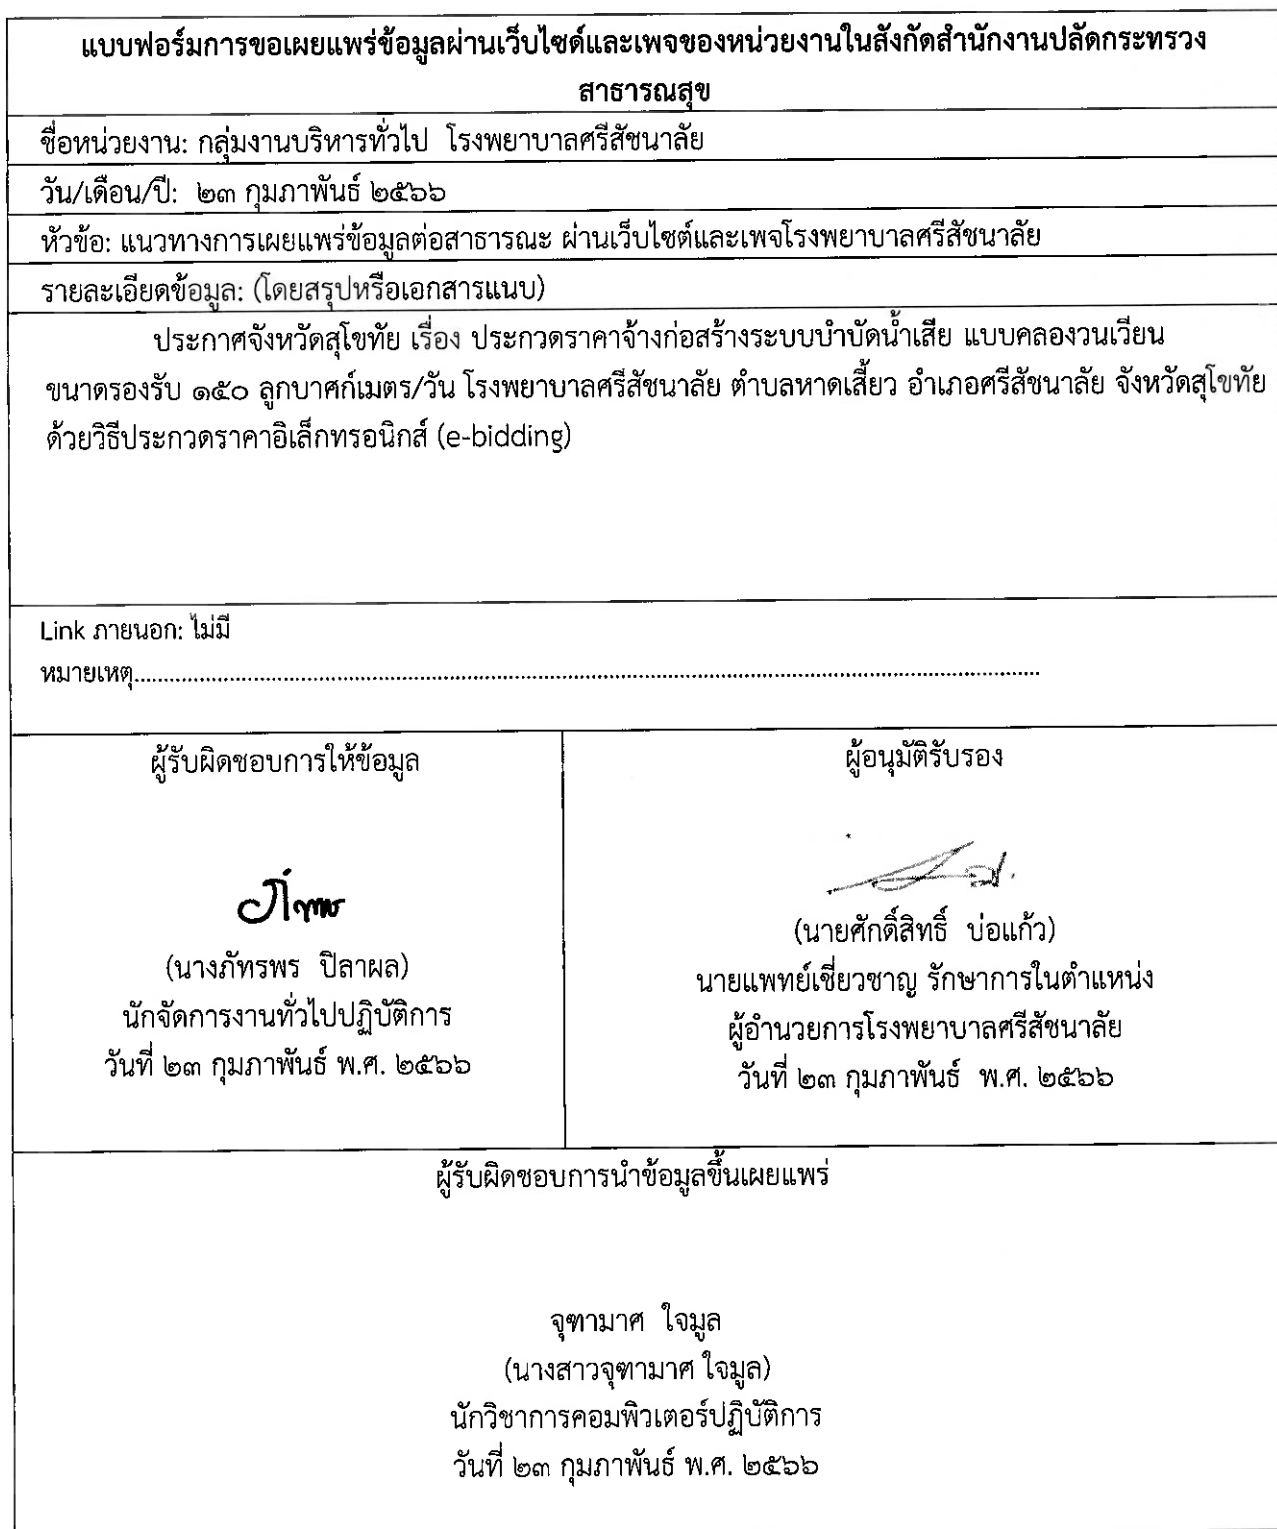 แบบฟอร์มการขอเผยแพร่ข้อมูลผ่านเว็บไซด์และเพจของหน่วยงานในสังกัดสำนักงานปลัดกระทรวง
สาธารณสุข
ชื่อหน่วยงาน: กลุ่มงานบริหารทั่วไป โรงพยาบาลศรีสัชนาลัย
วัน/เดือน/ปี: ๒๓ กุมภาพันธ์ ๒๕๖๖
หัวข้อ: แนวทางการเผยแพร่ข้อมูลต่อสาธารณะ ผ่านเว็บไซต์และเพจโรงพยาบาลศรีสัชนาลัย
รายละเอียดข้อมูล: (โดยสรุปหรือเอกสารแนบ)
ประกาศจังหวัดสุโขทัย เรื่อง ประกวดราคาจ้างก่อสร้างระบบบำบัดน้ำเสีย แบบคลองวนเวียน
ขนาดรองรับ ๑๕๐ ลูกบาศก์เมตร/วัน โรงพยาบาลศรีสัชนาลัย ตำบลหาดเสี้ยว อำเภอศรีสัชนาลัย จังหวัดสุโขทัย
ด้วยวิธีประกวดราคาอิเล็กทรอนิกส์ (e-bidding)
Link ภายนอก: ไม่มี
หมายเหตุ.......................................................................................................................................................
ผู้รับผิดชอบการให้ข้อมูล
ภัทรพร
(นางภัทรพร ปิลาผล)
นักจัดการงานทั่วไปปฏิบัติการ
วันที่ ๒๓ กุมภาพันธ์ พ.ศ. ๒๕๖๖
ผู้อนุมัติรับรอง
(นายศักดิ์สิทธิ์ บ่อแก้ว)
นายแพทย์เชี่ยวชาญ รักษาการในตำแหน่ง
ผู้อำนวยการโรงพยาบาลศรีสัชนาลัย
วันที่ ๒๓ กุมภาพันธ์ พ.ศ. ๒๕๖๖
ผู้รับผิดชอบการนำข้อมูลขึ้นเผยแพร่
จุฑามาศ ใจมูล
(นางสาวจุฑามาศ ใจมูล)
นักวิชาการคอมพิวเตอร์ปฏิบัติการ
วันที่ ๒๓ กุมภาพันธ์ พ.ศ. ๒๕๖๖